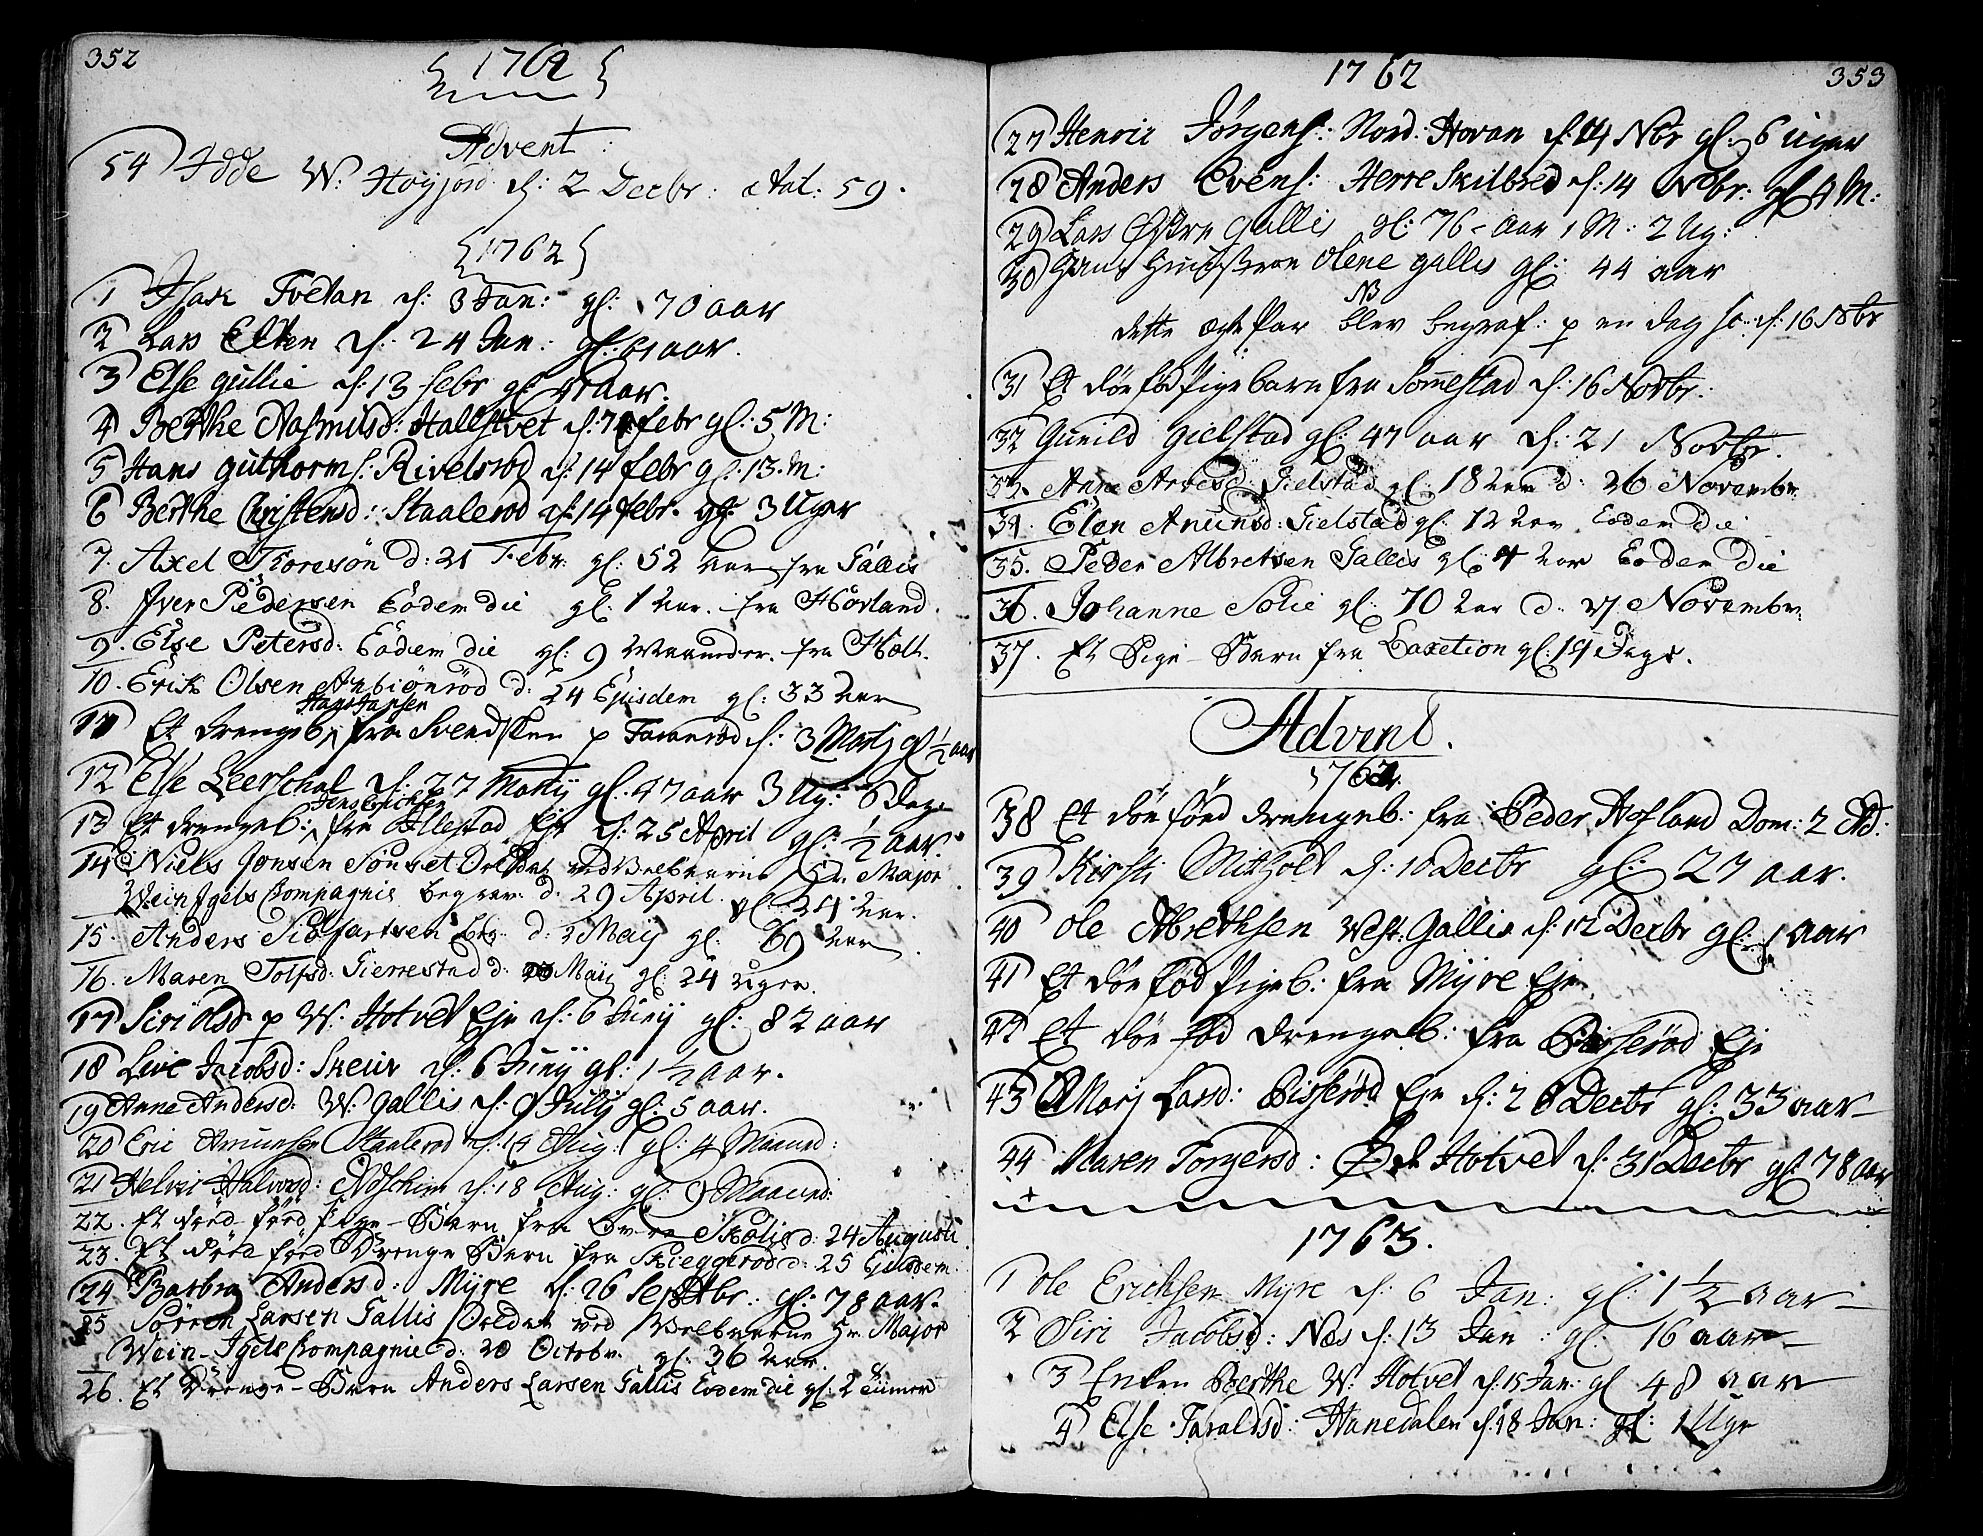 352
1762
Advent:
54 Idde W: Høyjord d: 2 Decbr: Æat: 59.
1762
1 Isak Tvetan d: 3 Jan: gl: 70 aar
2 Lars Elken d: 24 Jan: gl: 61 aar.
3 Else gullie d: 13 febr gl aar.
4 Berthe Rasmusd: Hallstvet d: febr gl: 5 M:
5 Hans guthorms: Rivelsrød d: 14 febr gl: 13. M:
6 Berthe Christensd: Staalerød d: 14 febr. gl: 3 Uger
7. Axel Thoresøn d: 21 Febr. gl: 52 aar fra Gallis
8. Iver Pedersen Eodem die gl: 1 aar. fra Hørland.
9. Else Petersd: Eodem die gl: 9 Maaneder. fra Holt.
10. Erik Olsen Anbiønrød d: 24 Ejusdem gl: 33 aar
Hans Jansen
11 Et drengeb: fra Svendsken p Faanerød d: 3 Martj gl ½ aar
12 Else Leerschal d: 27 Martij gl. 47 aar 3 Ug: 6 dage
Jens Erichsen
13 Et drengeb: fra Allestad Eje d: 25 April gl: ½ aar.
14 Niels Jonsen Sønset Soldat ved Velbaarne Hr. Major
Weinigels Compagnie begrav: d: 29 April. gl: 24 aar.
15. Anders Sibjørtsen d: 2 Maij gl: 69 aar
16. Maren Tolfsd: Gierrestad d: Maij gl: 24 uger.
17 Siri Olsd: p W: Hotvet Eje d: 6 Junij gl: 82 aar
18 Live Jacobsd: Skeiv d: 6 Junij gl: 1 ½ aar.
19 Anne Andersd: W: gallis d: 9 Julij gl: 5 aar.
20 Eric Amunsen Staalerød d: 14 Aug: gl: 4 Maaned:
21 Helvi Halvorsd: d: 18 Aug: gl: 9 Maaned:
22. Et død-fød Pige-Barn fra Øvre Skolie d: 24 Augusti.
23. Et død fød Drenge Barn fra Skieggerød d: 25 Ejusdem.
24 Barbra Andersd: Myre d: 26 Septbr: gl: 78 aar.
25 Sørren Larsen Gallis Soldat ved Velbaarne Hr Major
Wein-Igels Compagnie d: 20 Octobr. gl: 36 aar.
26. Et Drenge-Barn Anders Larsen Gallis Eodem die gl: 2
353
1762
27 Henric Jørgens: Nord: Hovan d: 14 Nbr gl: 6 Uger
28 Anders Evens: Herre Skilbred d: 14 Nbr: gl 4 M:
29 Lars Østen gallis gl: 76 - aar 1 M: 2 Ug:
30 Hans Hustroe Olene gallis gl: 44 aar
NB
dette ægte Par blev begraf: p en dag sc: d: 16 Nbr
31 Et død fød Pigebarn fra Sommestad d: 16 Novbr:
32 Gunild Gielstad gl: 47 aar d: 21 Novbr.
33. Anne Arvesd: Gielstad gl: 18 aar d: 26 Novembr.
34. Elen Anunsd: Gielstad gl: 12 aar Eodem die
35. Peder Albretsen Gallis gl: 4 aar Eodem die
36. Johanne Solie gl: 70 aar d: 27 Novembr.
37. Et Pige-Barn fra Laxetion gl: 14 Dage.
Advent.
1762.
38 Et død fød drengeb: fra Peder Hofland Dom: 2 Ad:
39 Kirsti Mitholt d: 10 Decbr gl: 27 aar.
40 Ole Abrethsen West: Gallis d: 12 Decbr gl: 1 aar
41 Et død fød Pigeb: fra Myre Eje
42 Et død fød drengeb: fra Bisserød Eje
43 Mari Larsd: Bisserød Eje d: 26 Decbr gl: 33 aar
44 Maren Torgersd: Ødr Hotvet d: 31 Decbr gl: 78 aar
1763.
1 Ole Erichsen Myre d: 6 Jan: gl: 1 ½ aar
2 Siri Jacobsd: Nes d: 13 Jan: gl: 16 aar
3 Enken Berthe W: Hotvet d: 15 Jan: gl 48 aar
4 Else Taraldsd: Hanedalen d: 18 Jan: gl: 1 Uge